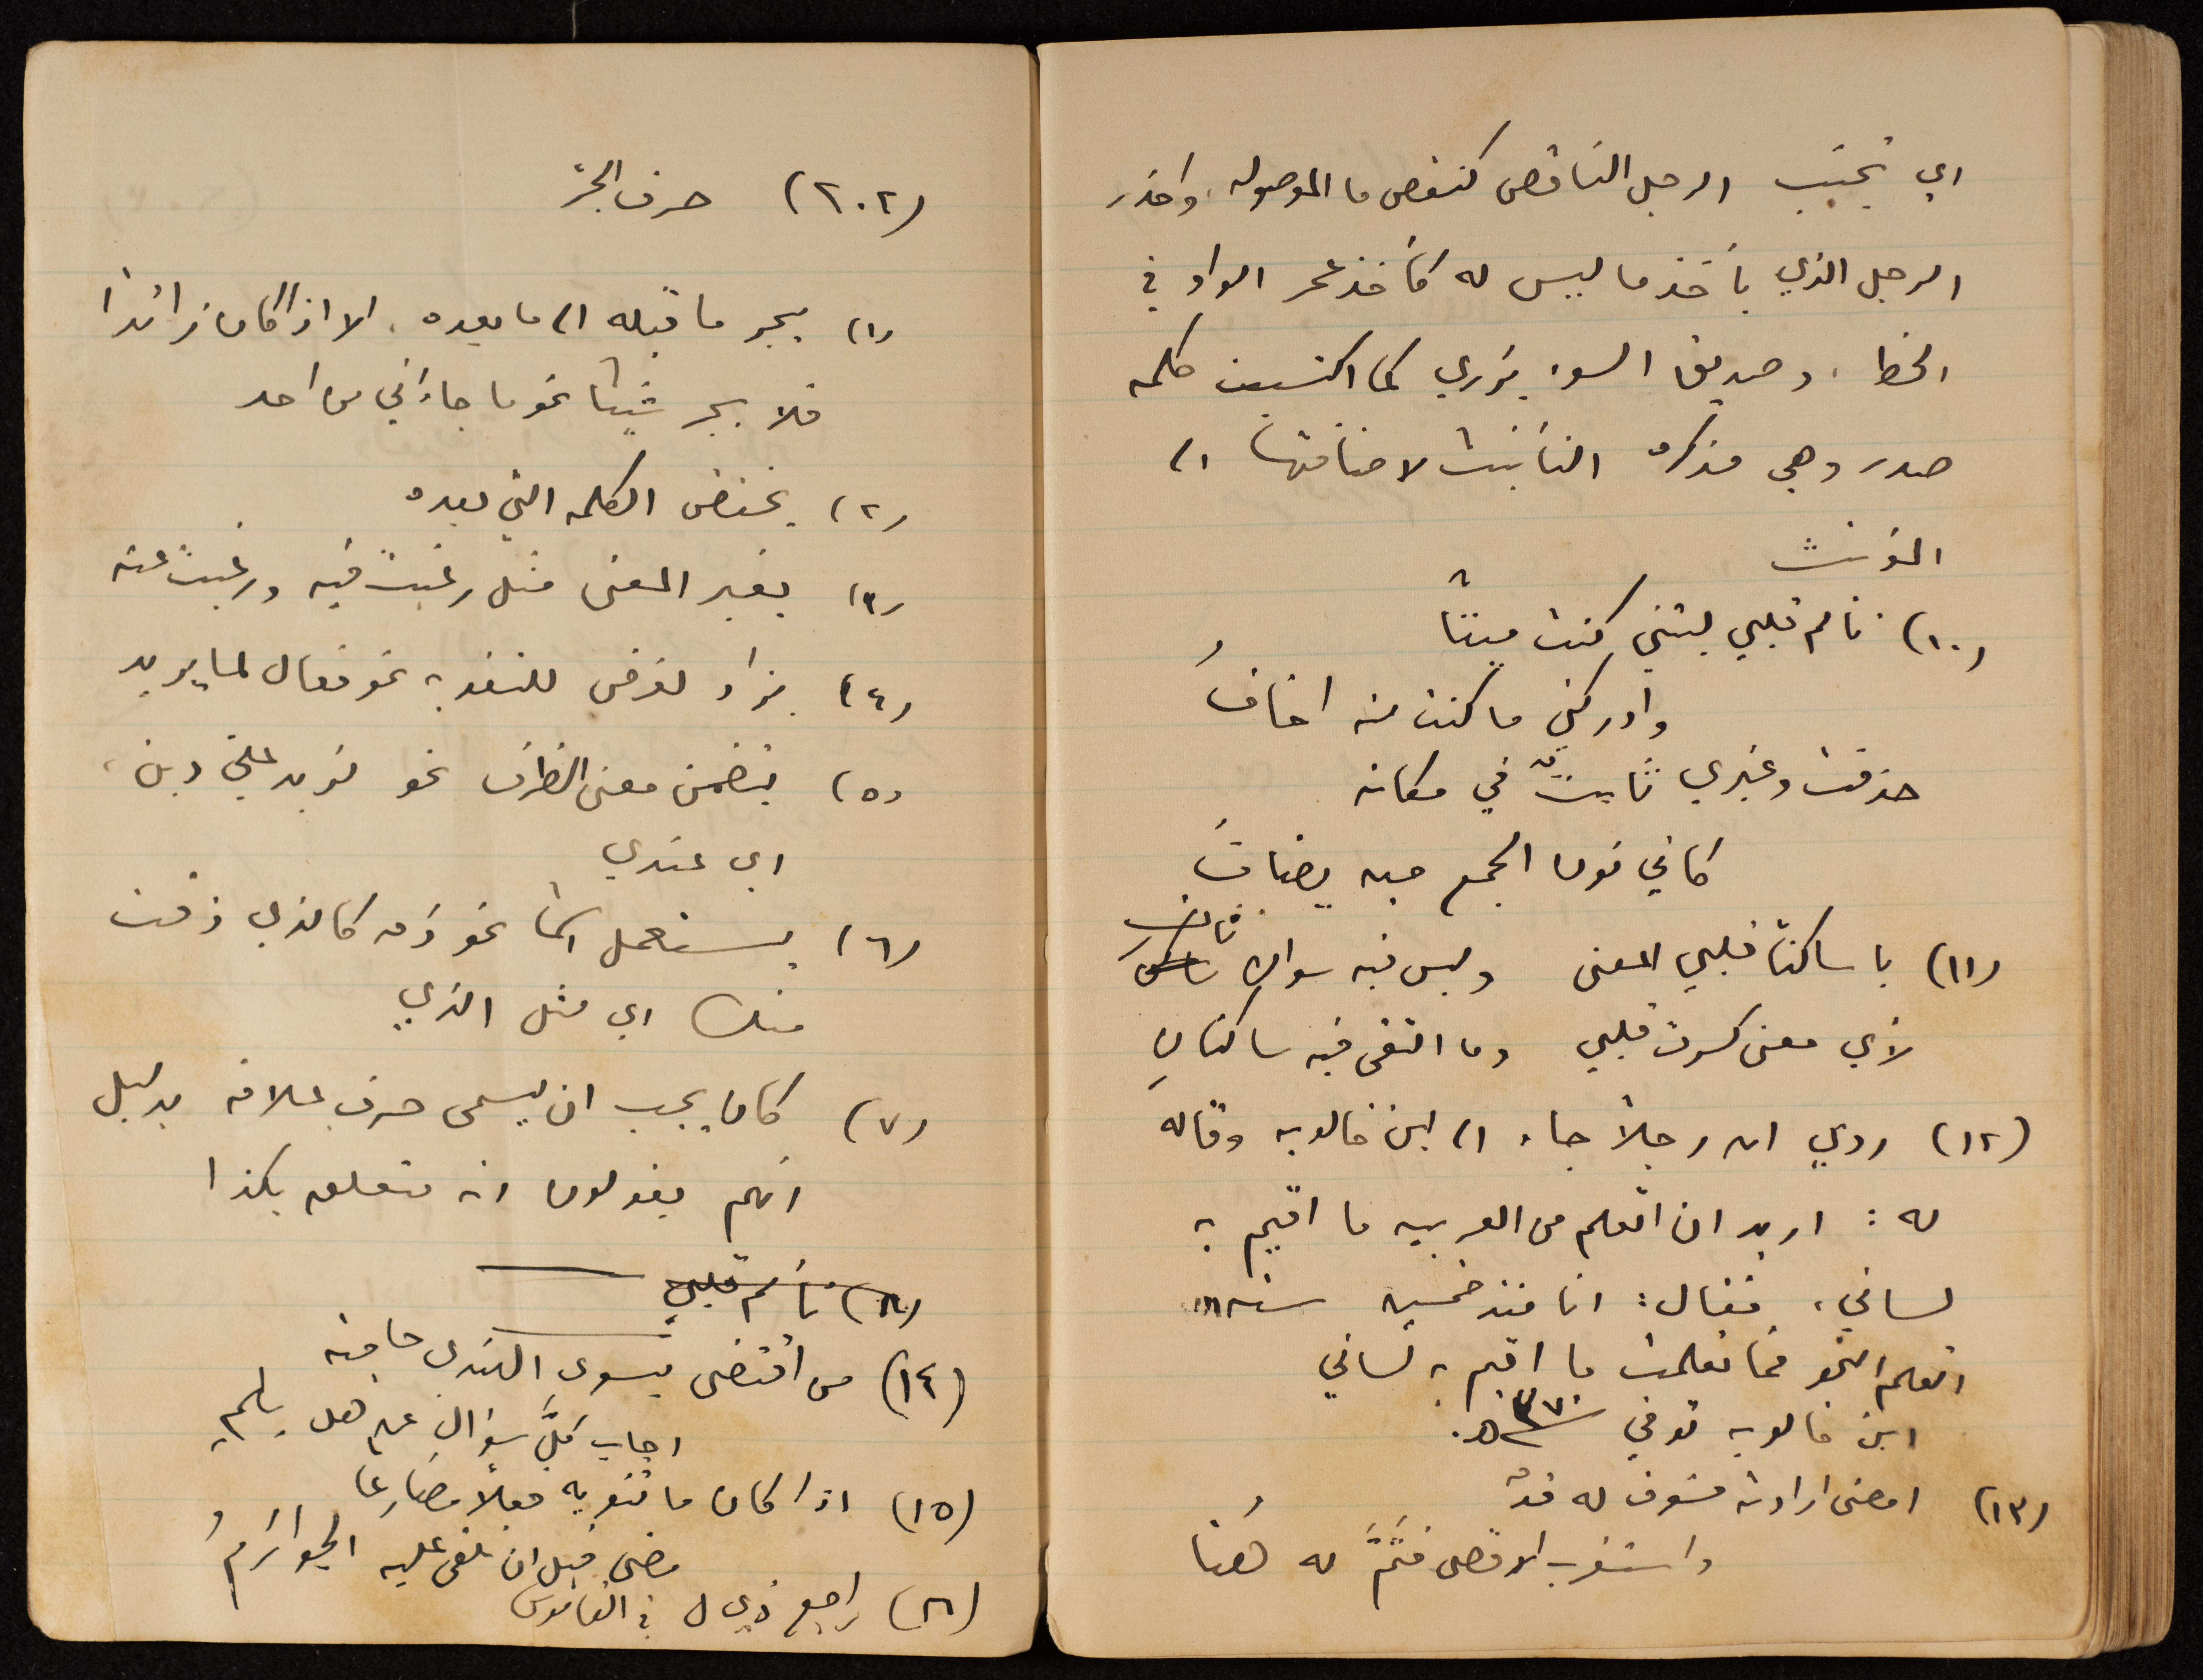 اي تجنب الرجل الناقص كنقص ما الموصوله، واحذر
الرجل الذي يأخذ ما ليس له كأخذ عمر الواو في
الخط، وصديق السوء يزري كما اكتسبت كلمه
صدر وهي مذكره التأنيث لاضافتها الى
المؤنث
(١٠) تألم قلبي ليتني كنت ميتا
وادركني ما كنت منه اخافُ
حذفت وغيري ثابت في مكانه
كاني نون الجمع حيه يضافُ
(١١) يا ساكنا قلبي المعنى وليس فيه سواك ثان
لاي معنى كسرت قلبي وما التقى فيه ساكنانِ
(١٢) روي ان رجلاً جاء الى ابن خالويه وقال
له: اريد ان اتعلم من العربيه ما اقيم به
لساني، فقال: انا منذ خمسين سنه
اتعلم النحو فما تعلمت ما اقيم به لساني
ابن خالويه توفي سنة ٣٧٠ هـ.
(١٣) امضى ارادته فسوف له قدٌ
واستقرب الاقصى فثَمَّ له هُنا
(٢٠٢) حرف الجرّ
(١) يجر ما قبله الى ما بعده، الا اذا كان زائدا
فلا يجر شيئا نحو ما جاءني من احد
(٢) يخفض الكلمه التي بعده
(٣) يغير المعنى مثل رغبت فيه ورغبت عنه
(٤) يزاد لغرض للتقويه نحو فعال لما يريد
(٥) يتضمن معنى الظرف نحو لزيد علي دين،
اي عندي
(٦) يستعمل اسما نحو ذق كالذي ذقت
منك اي مثل الذي
(٧) كان يجب ان يسمى حرف علاقه بدليل
انهم يقولون انه متعلق بكذا
(٨) تألم قلبي
(١٤) من اقتضى بسوى الهندي حاجته
اجاب كلَّ سؤالٍ عن هل بلمِ
(١٥) اذا كان ما تنويه فعلاً مضارعا
مضى قبل ان تلقى عليه الجوازمُ
(١٦) راجع ذي ل في القاموس